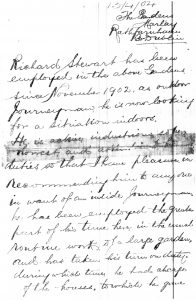 The Gardens
Marlay
Rathfarnham
Co Dublin
Richard Stewart has been
employed in the above Gardens
since November 1902, as outdoor
Journeyman, he is now looking
for a situation indoors.
He is active industrious
honest and attentive to his
duties so that I have pleasure in
recommending him to anyone
in want of an inside Journeyman
he has been employed the greater
part of his time here, in the usual
routine work, of a large garden,
and has taken his turn on duty,
during which time he had charge
of the houses, to which he gave